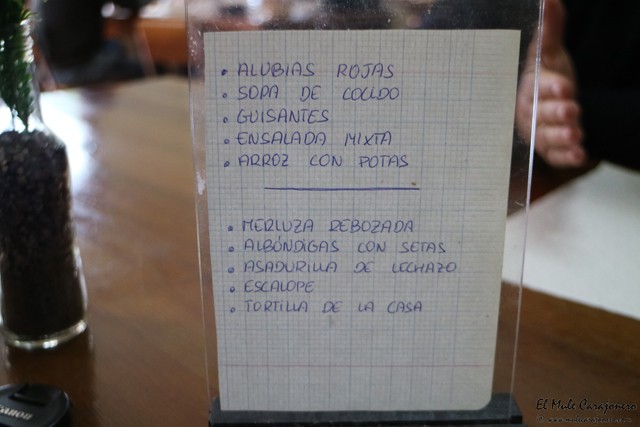 • ALUBIAS ROJAS
• SOPA DE COCIDO
• GUISANTES
• ENSALADA MIXTA
• ARROZ CON POTAS
• MERLUZA REBOZADA
• ALBÓNDIGAS CON SETAS
• ASADURILLA DE LECHAZO
• ESCALOPE
• TORTILLA DE LA CASA
Canon
El Mule Carajonero